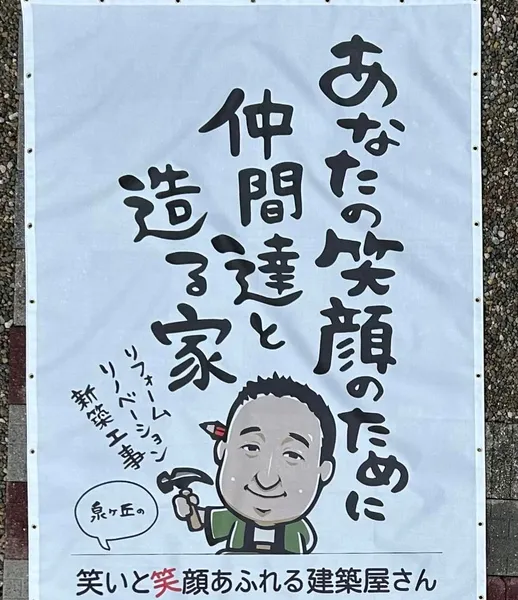 あなたの笑顔のために
仲間達と
造る家
リフォーム
リノベーション
新築工事
泉ヶ丘の
笑いと笑顔あふれる建築屋さん